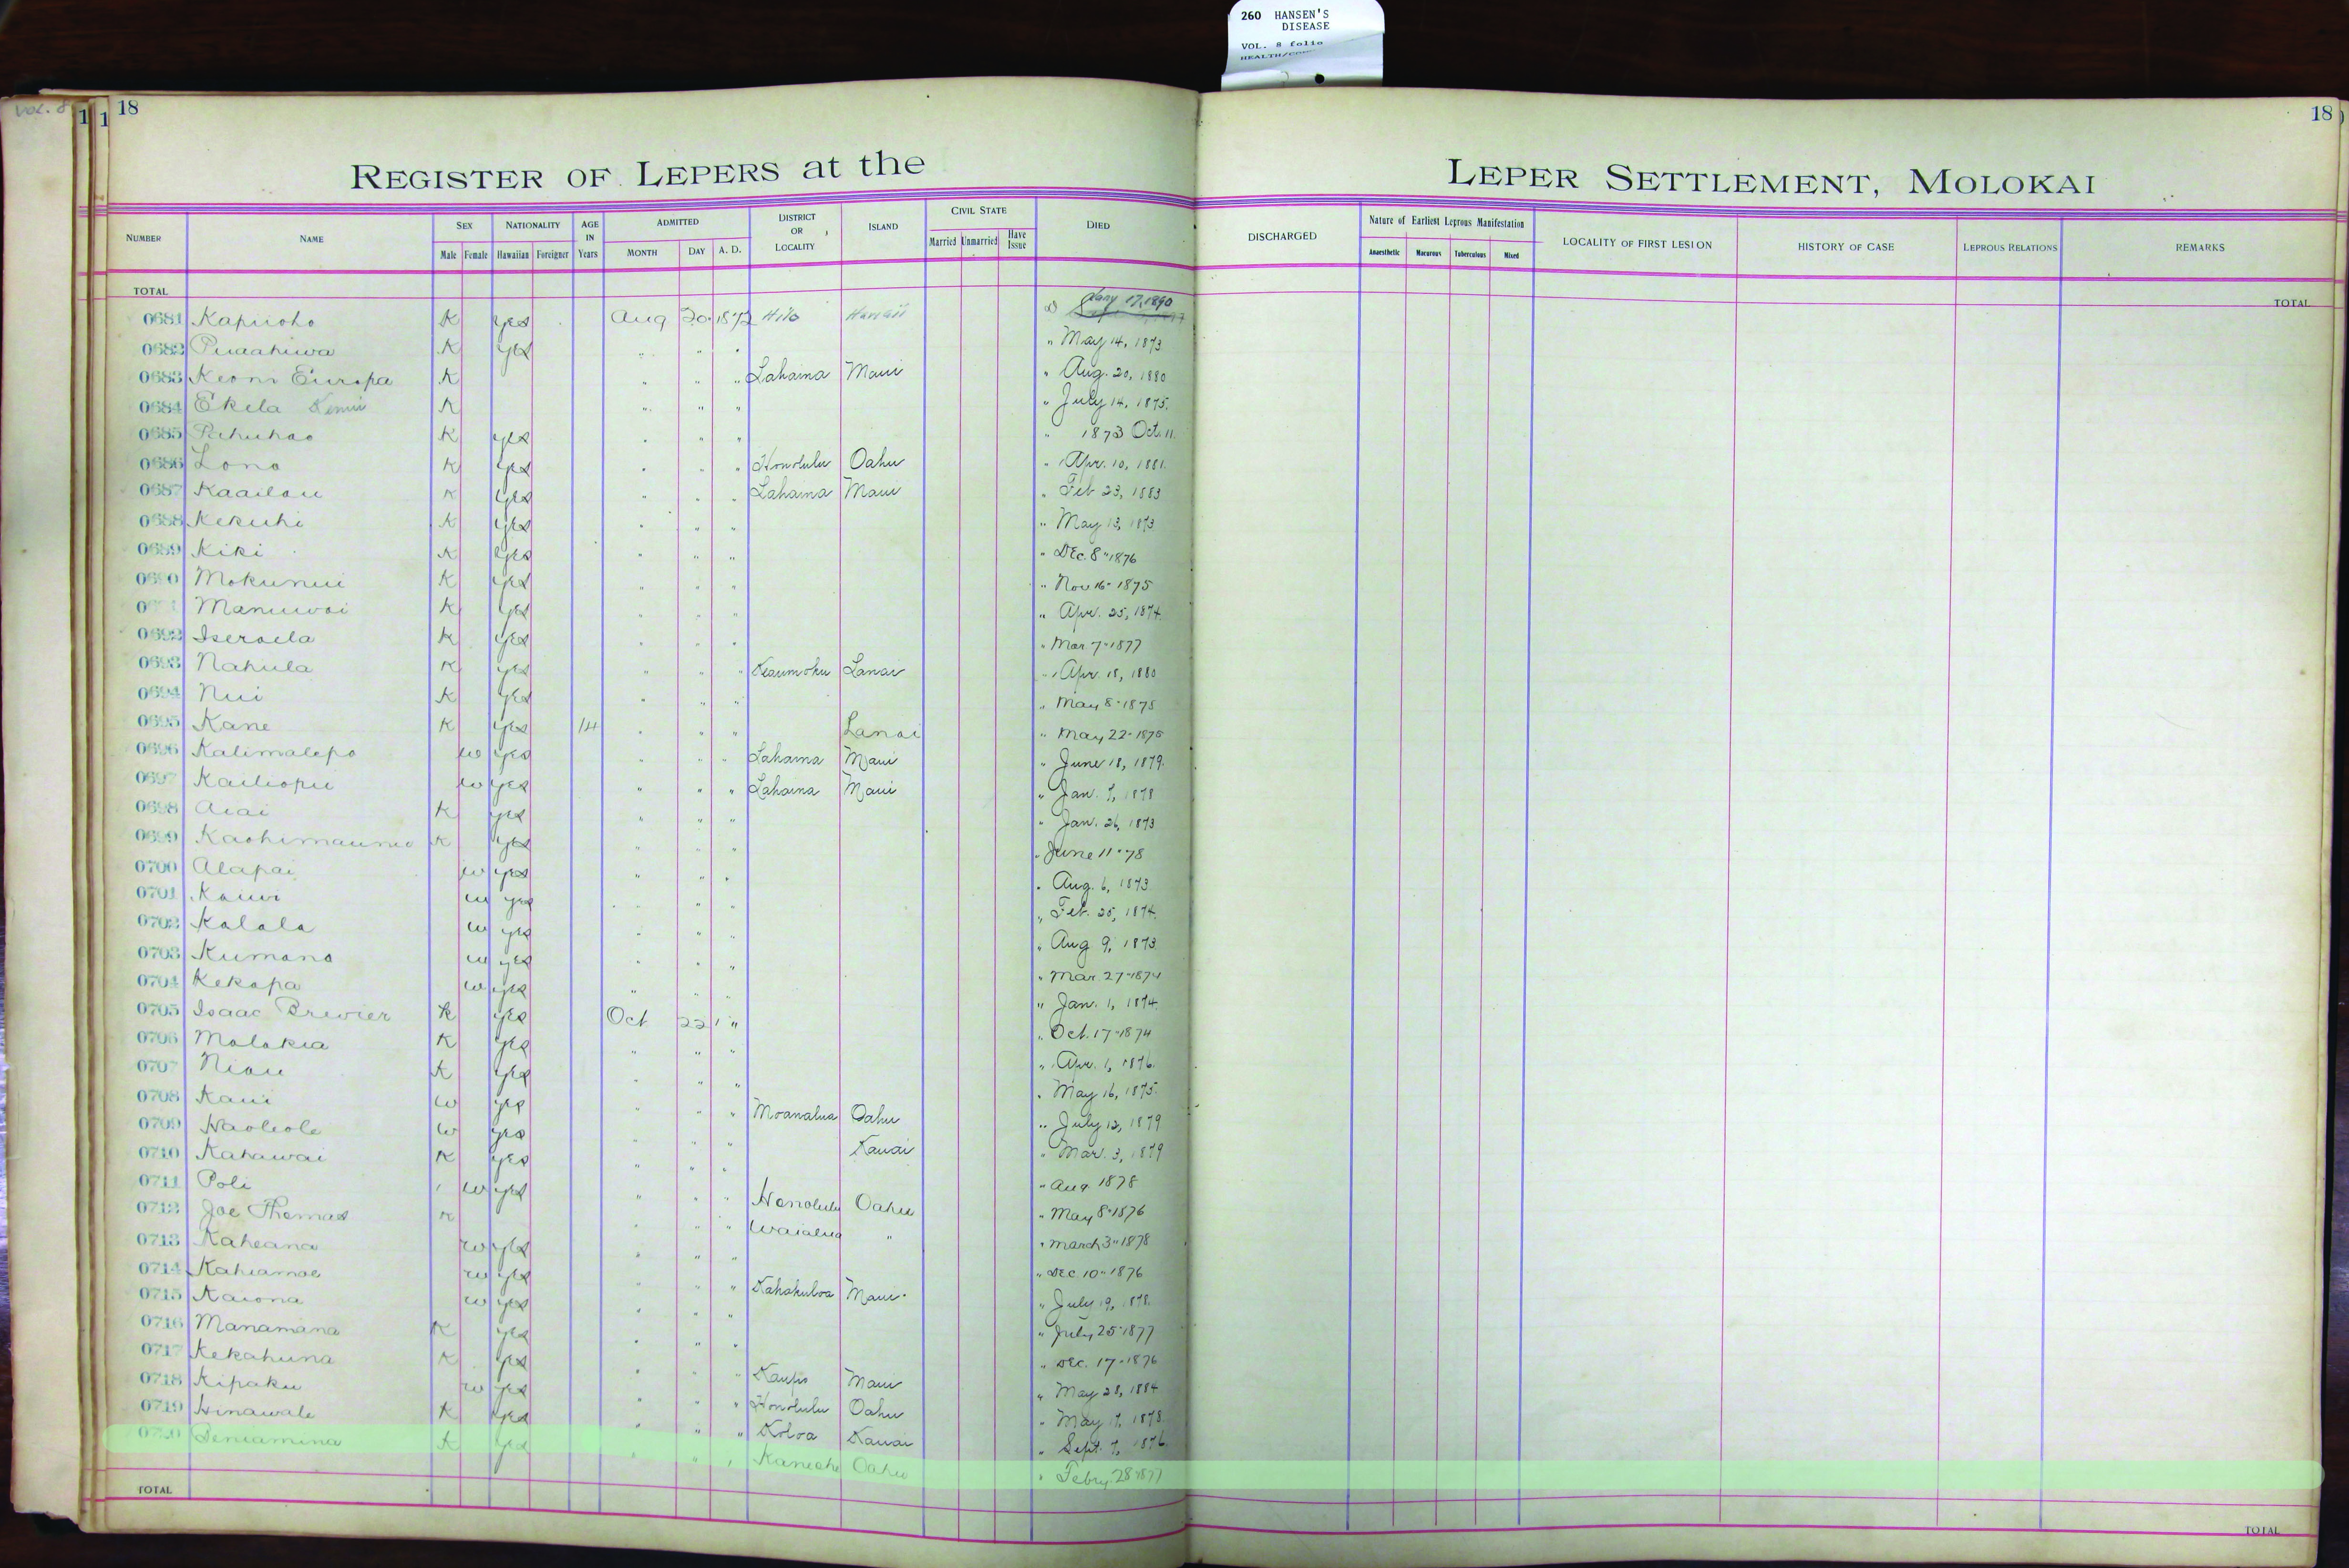 260 HANSEN'S
DISEASE
VOL. 8 folio
Vol. 8
18
18
REGISTER OF LEPERS at the LEPER SETTLEMENT, MOLOKAI
NUMBER NAME SEX Male Female NATIONALITY Hawaiian Foreigner AGE IN Years ADMITTED MONTH DAY A. D. DISTRICT OR LOCALITY ISLAND CIVIL STATE Married Unmarried Have Issue DIED DISCHARGED Nature of Earliest Leprous Manifestation Anaesthetic Macurous Tuberculous Mixed LOCALITY OF FIRST LESION HISTORY OF CASE LEPROUS RELATIONS REMARKS
TOTAL TOTAL
0681 Kapiioho K yes Aug 20 1872 Hilo Hawaii Jany 17, 1890
0682 Puaahiwa K yes " " " " May 14, 1873
0683 Keoni Europa K " " " Lahaina Maui " Aug. 20, 1880
0684 Ekela K " " " " July 14, 1875.
0685 Pahuhao K yes " " " " 1873 Oct. 11
0686 Lono K yes " " " Honolulu Oahu " Apr. 10, 1881.
0687 Kaailau K yes " " " Lahaina Maui " Feb 23, 1883
0688 Kekuhi K yes " " " " May 13, 1873
0689 Kiki K yes " " " " Dec. 8" 1876
0690 Mokunui K yes " " " " Nov 16" 1875
Manuwai K yes " " " " Apr. 25, 1874.
0692 Iseraela K yes " " " " Mar 7" 1877
0693 Nahula K yes " " " Keaumoku Lanai " Apr. 18, 1880
0694 Nui K yes " " " " May 8" 1875
0695 Kane K yes 14 " " " Lanai " May 22" 1875
0696 Kalimalepo w yes " " " Lahaina Maui " June 18, 1879.
0697 Kailiopu w yes " " " Lahaina Maui " Jan. 7, 1878
0698 Aiai K yes " " " " Jan. 26, 1873
0699 K yes " " " " June 11" 78
0700 Alapai w yes " " " " Aug. 6, 1873
0701 Kauwi w yes " " " " Feb. 25, 1874.
0702 Kalala w yes " " " " Aug 9, 1873.
0703 Kumano w yes " " " " Mar 27" 1874
0704 Kekapa w yes " " " " Jan. 1, 1874.
0705 Isaac Brewier K yes Oct 22 " " Oct. 17" 1874
0706 Molokia K yes " " " " Apr. 1, 1876.
0707 Niau K yes " " " " May 16, 1875.
0708 Kaui w yes " " " Moanalua Oahu " July 12, 1879
0709 Haoleole w yes " " " Kauai " Mar. 3, 1879
0710 Kahawai K yes " " " " Aug 1878
0711 Poli w yes " " " Honolulu Oahu " May 8" 1876
0712 Joe Thomas K " " " Waialua " " March 3" 1878
0713 Kaheana w yes " " " " Dec 10" 1876
0714 Kahiamoe w yes " " " Kahakuloa Maui " July 19, 1878.
0715 Kaiona w yes " " " " July 25" 1877
0716 Manamana K yes " " " " Dec. 17" 1876
0717 Kekahuna K yes " " " Kaupo Maui " May 28, 1884
0718 Kipaku w yes " " " Honolulu Oahu " May 17, 1878.
0719 Hinawale K yes " " " Koloa Kauai " Sept. 7, 1876
0720 Beniamina K yes " " " Kaneohe Oahu " Febry. 28" 1877
TOTAL TOTAL